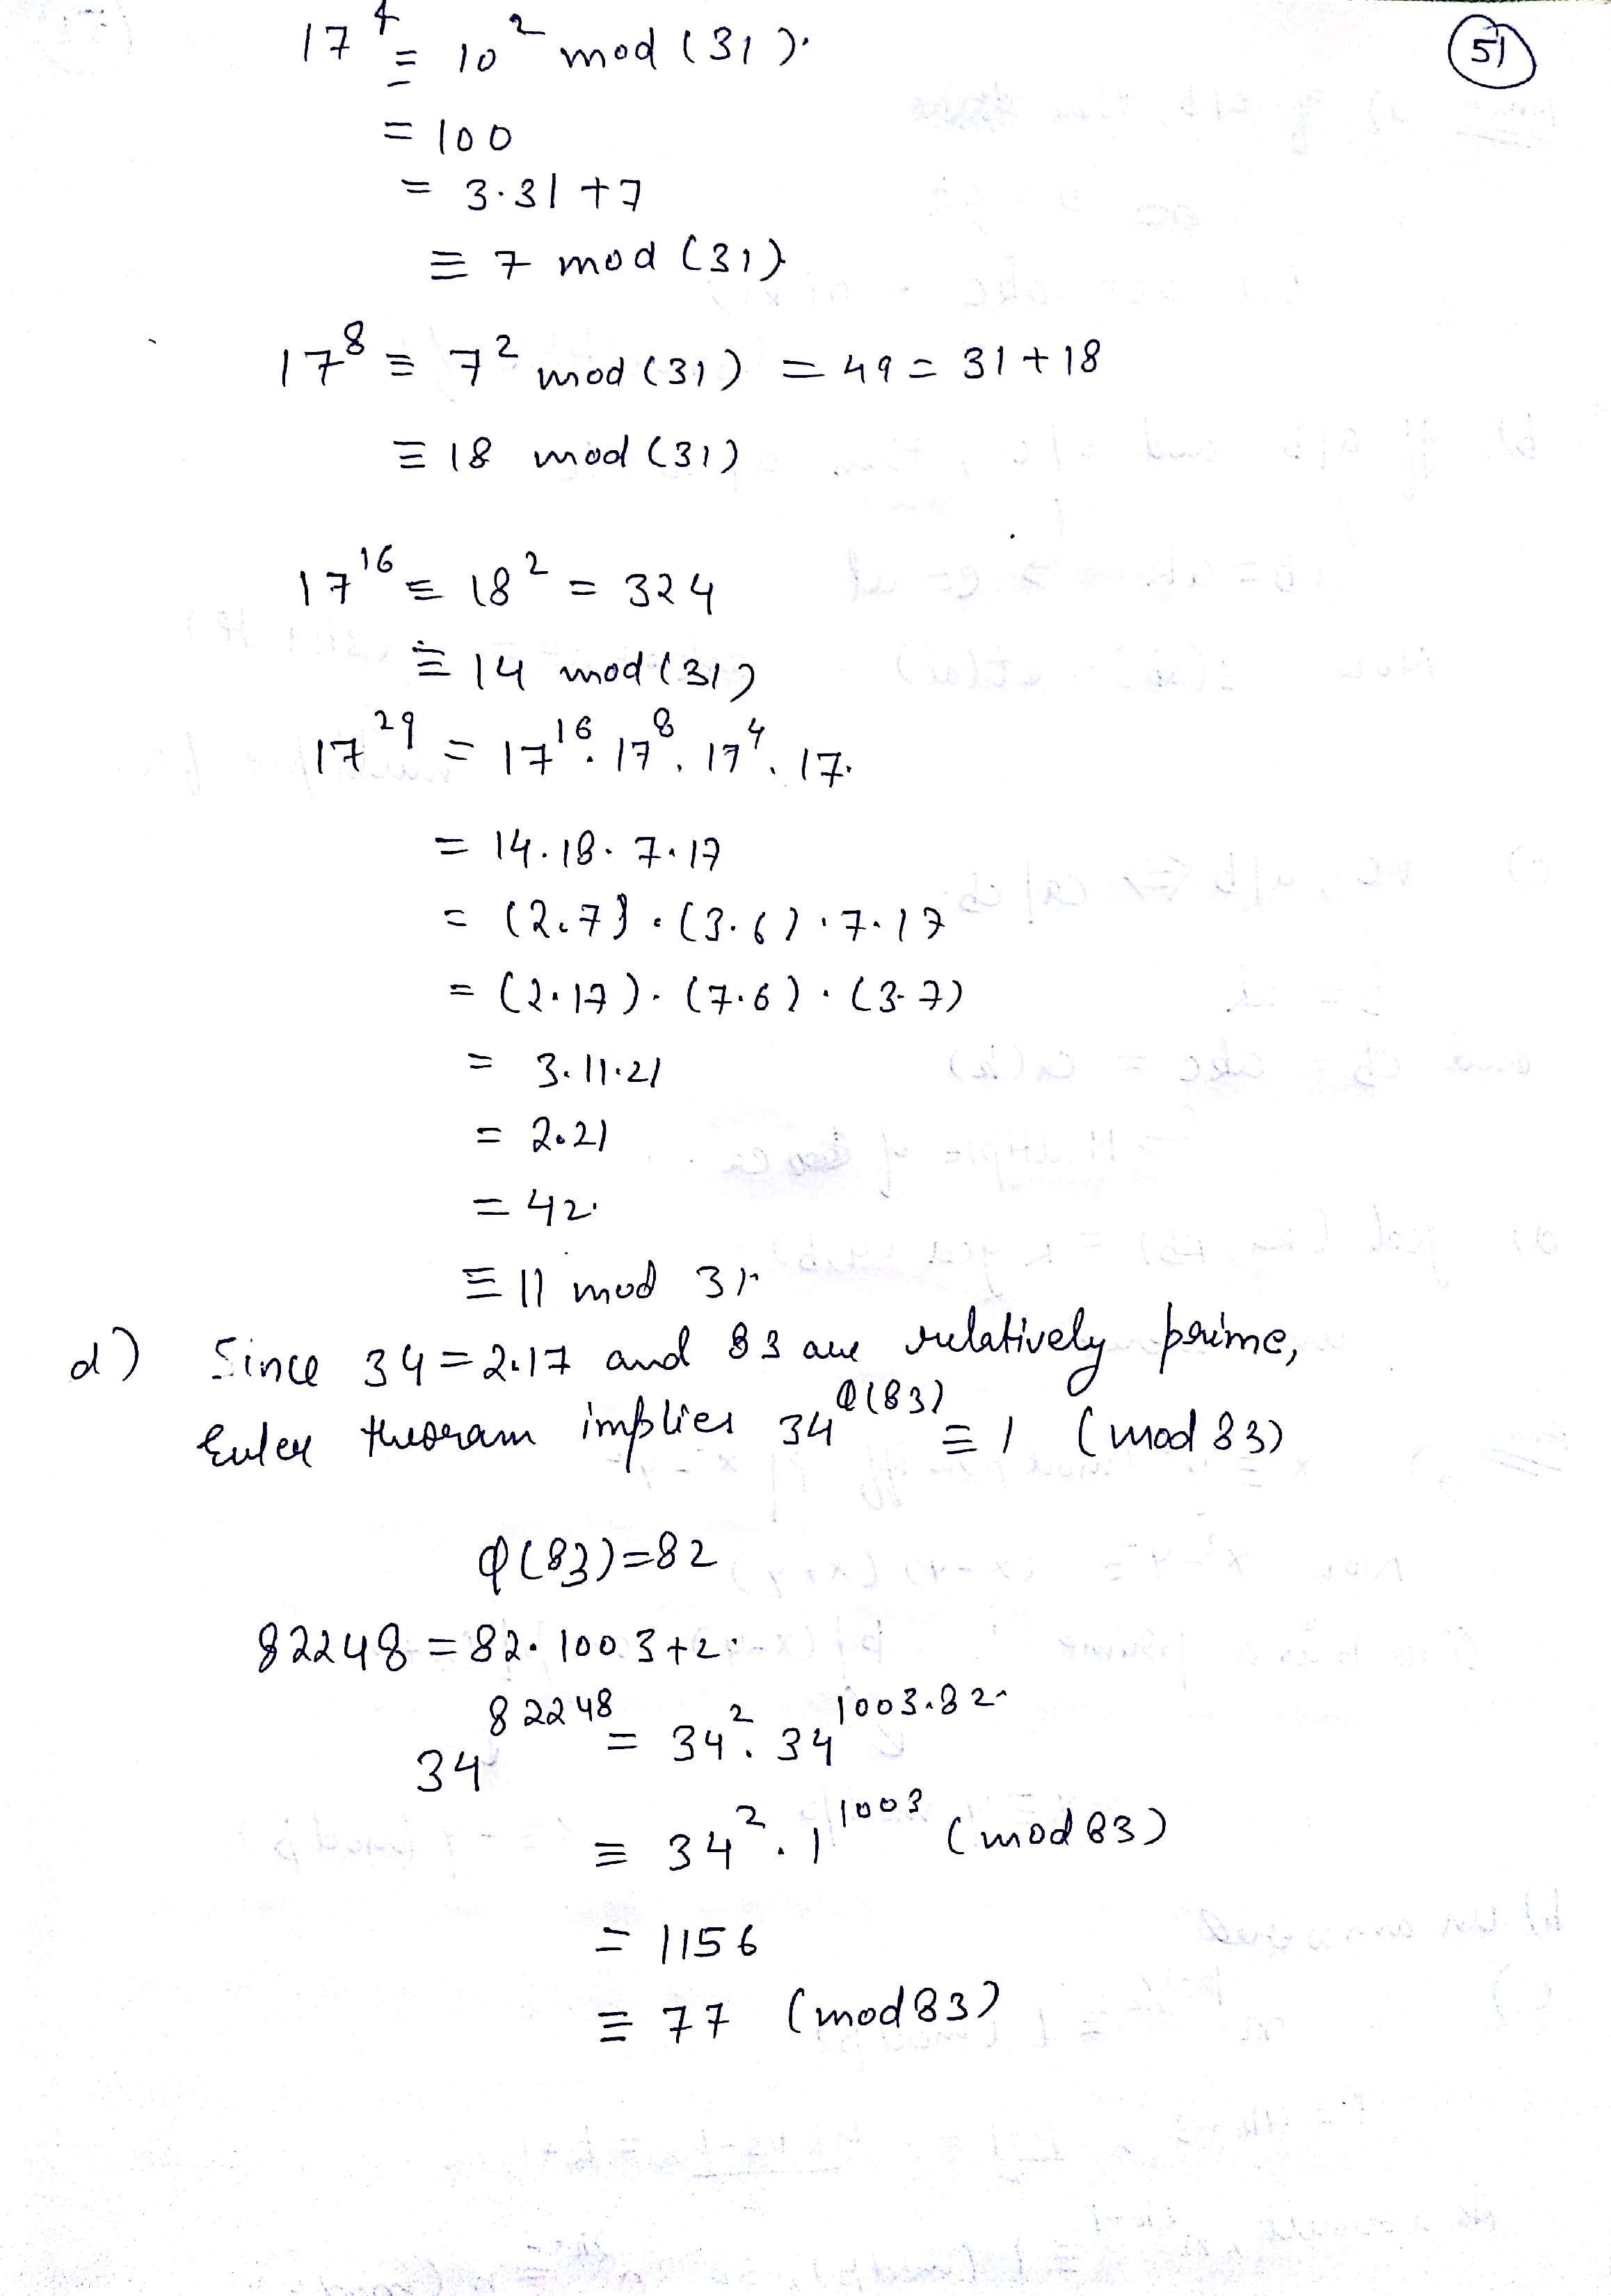 51
17⁴ ≡ 10² mod (31).
= 100
= 3·31 + 7
≡ 7 mod (31)
17⁸ ≡ 7² mod (31) = 49 = 31 + 18
≡ 18 mod (31)
17¹⁶ ≡ 18² = 324
≡ 14 mod (31)
17²⁹ = 17¹⁶. 17⁸. 17⁴. 17.
= 14·18·7·17
= (2·7)·(3·6)·7·17
= (2·17)·(7·6)·(3·7)
= 3·11·21
= 2·21
= 42.
≡ 11 mod 31.
d) Since 34 = 2·17 and 83 are relatively prime,
Euler theoram implies 34^φ(83) ≡ 1 (mod 83)
φ(83) = 82
82248 = 82·1003 + 2.
34^82248 = 34². 34^1003·82.
≡ 34². 1^1003 (mod 83)
= 1156
≡ 77 (mod 83)